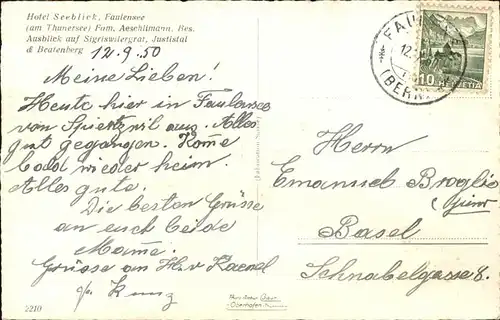 Hotel Seeblick, Faulensee
(am Thunersee) Fam. Aeschlimann, Bes.
Ausblick auf Sigriswilergrat, Justistal
& Beatenberg
12.9.50
Meine Lieben!
Heute hier in Faulensee
von Spiezwil aus. Alles
gut gegangen. Kome
bald wieder heim.
Alles gute.
Die besten Grüsse
an euch beide
Mame.
Grüsse an
Kunz
2210
FAULEN
12.
(BERN
10 HELVETIA
Herrn
Emanuel Broglie
Basel
Schnabelgasse 8.